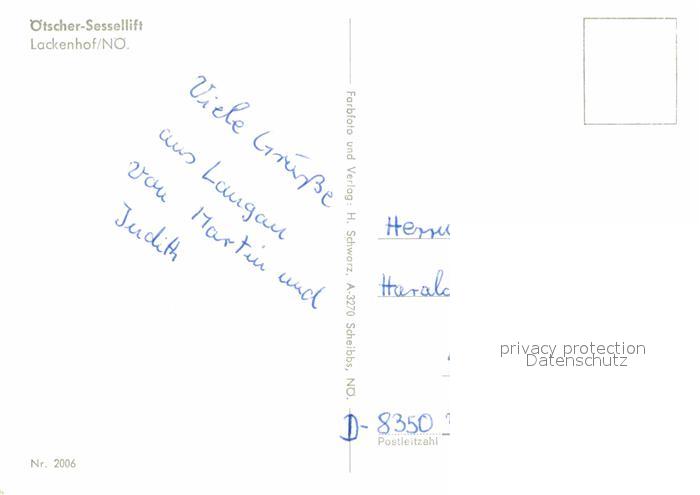 Ötscher-Sessellift
Lackenhof/NÖ.
Viele Grüße
aus Langau
von Martin und
Judith
Farbfoto und Verlag: H. Schwarz, A-3270 Scheibbs, NÖ.
Herrn
Harald
privacy protection
Datenschutz
D- 8350
Postleitzahl
Nr. 2006